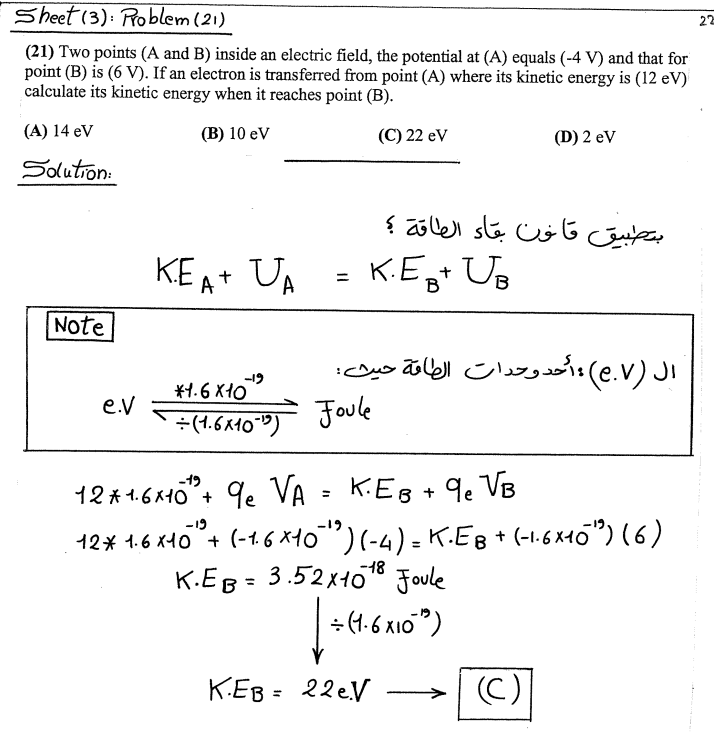 Sheet (3): Problem (21)
22
(21) Two points (A and B) inside an electric field, the potential at (A) equals (-4 V) and that for
point (B) is (6 V). If an electron is transferred from point (A) where its kinetic energy is (12 eV)
calculate its kinetic energy when it reaches point (B).
(A) 14 eV (B) 10 eV (C) 22 eV (D) 2 eV
Solution:
بتطبيق قانون بقاء الطاقة ؟
K.E_A + U_A = K.E_B + U_B
Note
ال (e.V): أحد وحدات الطاقة حيث:
*1.6×10^-19
e.V ⇌ Joule
÷(1.6×10^-19)
12*1.6×10^-19 + q_e V_A = K.E_B + q_e V_B
12* 1.6×10^-19 + (-1.6×10^-19)(-4) = K.E_B + (-1.6×10^-19)(6)
K.E_B = 3.52×10^-18 Joule
÷(1.6×10^-19)
K.E_B = 22e.V → (C)